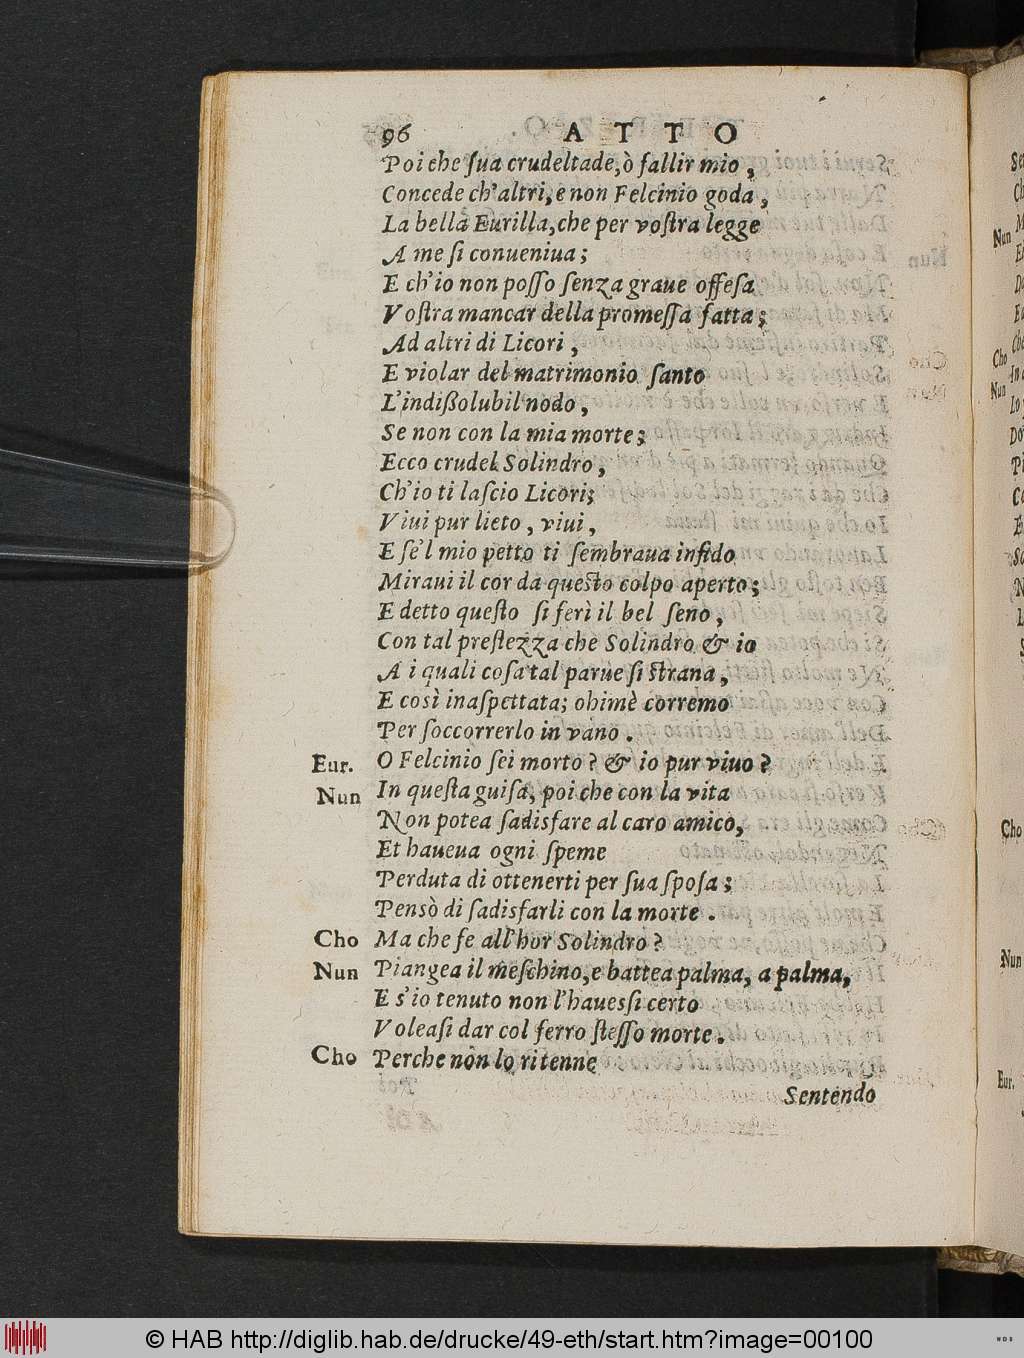 96 ATTO
Poi che ſua crudeltade, ò fallir mio,
Concede ch'altri, e non Felcinio goda,
La bella Eurilla, che per voſtra legge
A me ſi conueniua;
E ch'io non poſſo ſenza graue offeſa
Voſtra mancar della promeſſa fatta;
Ad altri di Licori,
E violar del matrimonio ſanto
L'indißolubil nodo,
Se non con la mia morte;
Ecco crudel Solindro,
Ch'io ti laſcio Licori;
Viui pur lieto, viui,
E ſe'l mio petto ti ſembraua infido
Miraui il cor da queſto colpo aperto;
E detto queſto ſi ferì il bel ſeno,
Con tal preſtezza che Solindro & io
A i quali coſa tal parue ſi ſtrana,
E così inaſpettata; ohimè corremo
Per ſoccorrerlo in vano.
Eur. O Felcinio ſei morto? & io pur viuo?
Nun In queſta guiſa, poi che con la vita
Non potea ſadisfare al caro amico,
Et haueua ogni ſpeme
Perduta di ottenerti per ſua ſpoſa;
Pensò di ſadisfarli con la morte.
Cho Ma che fe all'hor Solindro?
Nun Piangea il meſchino, e battea palma, a palma,
E s'io tenuto non l'haueſsi certo
Voleaſi dar col ferro ſteſſo morte.
Cho Perche non lo ritenne
Sentendo
Nun
Cho
Nun
Cho
Nun
Eur.
© HAB http://diglib.hab.de/drucke/49-eth/start.htm?image=00100